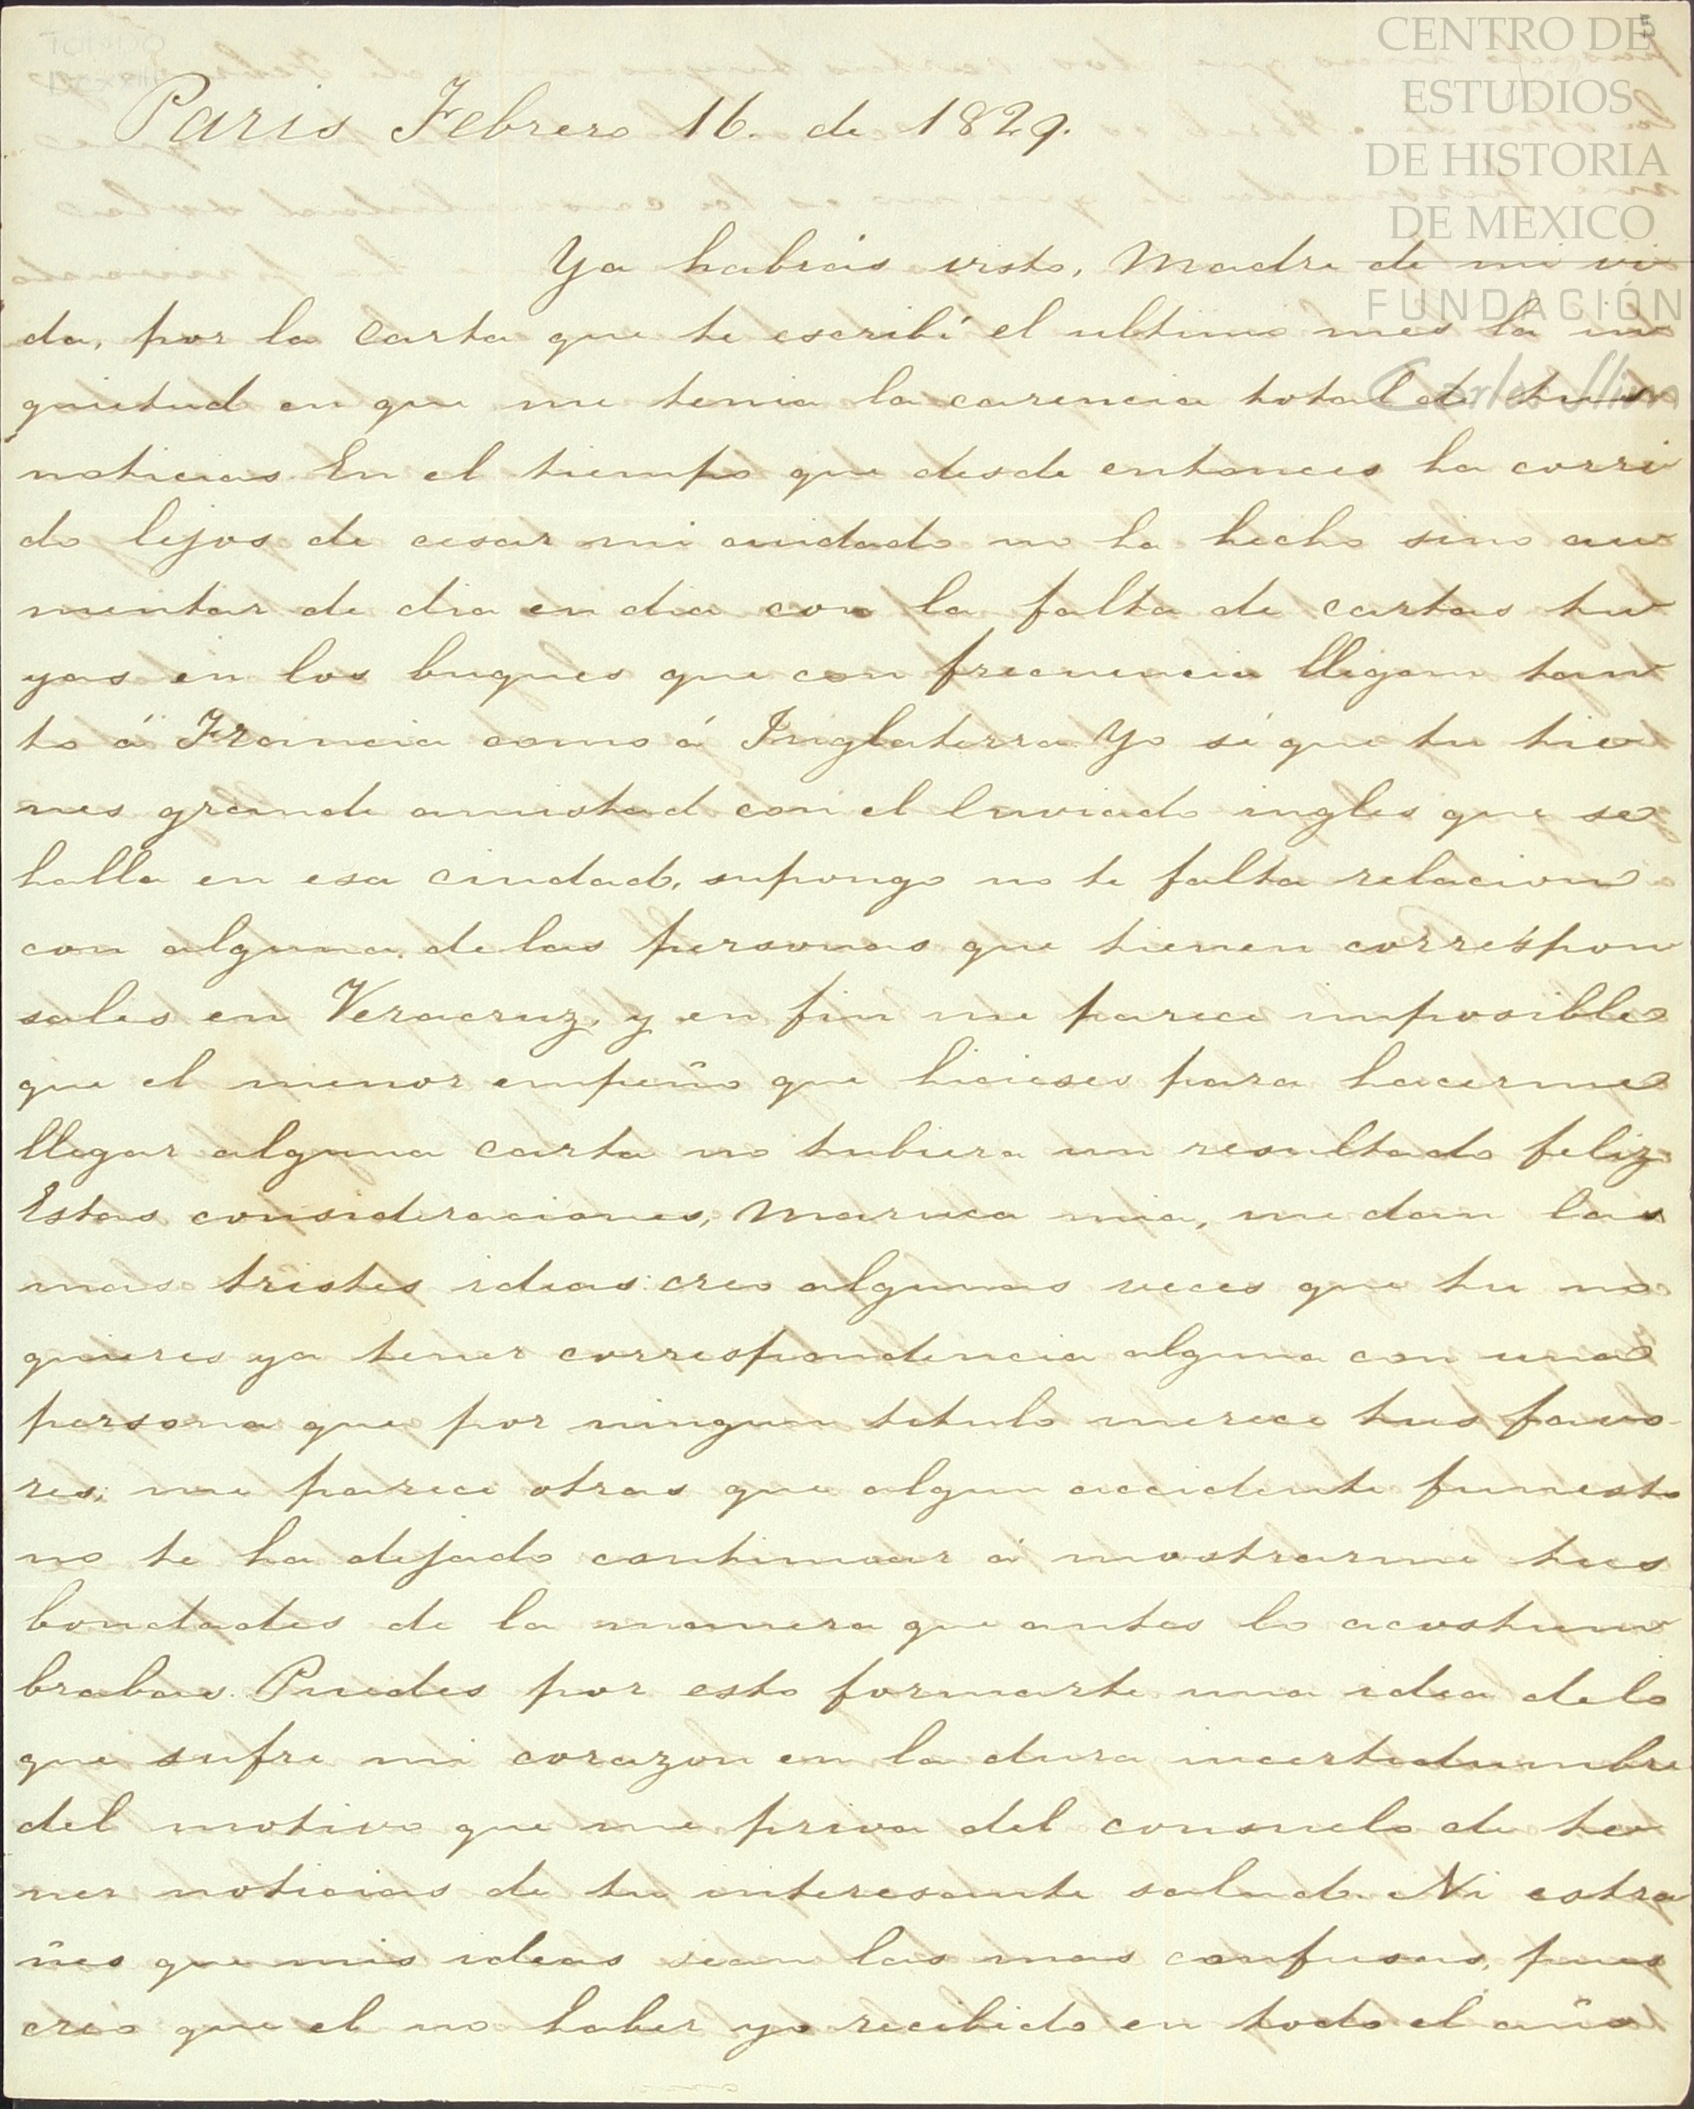 CENTRO DE
ESTUDIOS
DE HISTORIA
DE MEXICO
FUNDACIÓN
Carlos Slim
Paris Febrero 16. de 1829.
Ya habrás visto, Madre de mi vi
da, por la carta que te escribí el ultimo mes la in
quietud en que me tenia la carencia total de tus
noticias. En el tiempo que desde entonces ha corri
do lejos de cesar mi cuidado no ha hecho sino au
mentar de dia en dia con la falta de cartas tu
yas en los buques que con frecuencia llegan tan
to á Francia como á Inglaterra. Yo sé que tu tie
nes grande amistad con el Enviado ingles que se
halla en esa ciudad, supongo no te falta relacion
con alguna de las personas que tienen correspon
sales en Veracruz, y en fin me parece imposible
que el menor empeño que hicieses para hacerme
llegar alguna carta no tubiera un resultado feliz
Estas consideraciones, Maruca mia, me dan las
mas tristes ideas: creo algunas veces que tu no
quieres ya tener correspondencia alguna con una
persona que por ningun titulo merece tus favo-
res; me parece otras que algun accidente funesto
no te ha dejado continuar á mostrarme tus
bondades de la manera que antes lo acostum
brabas. Puedes por esto formarte una idea de lo
que sufre mi corazon en la dura incertidumbre
del motivo que me priva del consuelo de te
ner noticias de tu interesante salud. Ni estra
ñes que mis ideas sean las mas confusas, pues
creo que el no haber yo recibido en todo el año